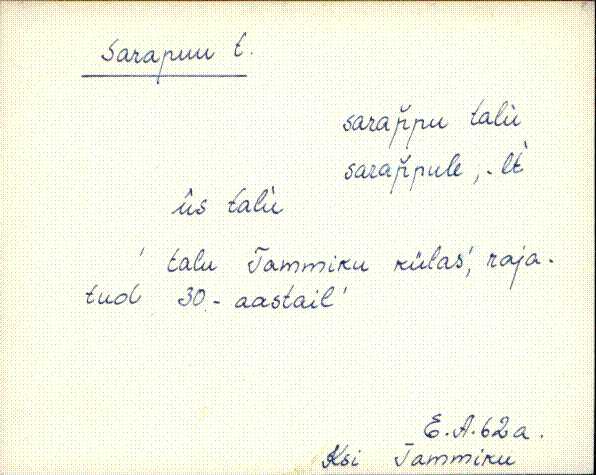 Sarapuu t.
sarap̆pu talù
sarap̆pule, -lt̀
ùs talù
' talu Tammiku külas', raja-
tud 30-aastail'
E.A. 62a.
Ksi Tammiku